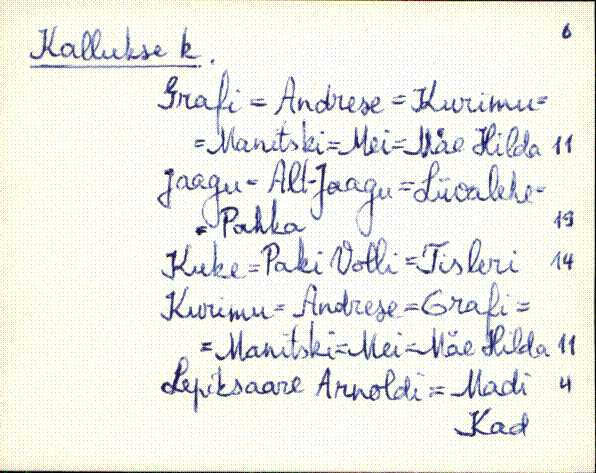 6
Kallukse k.
Grafi = Andrese = Kurimu=
= Manitski = Mei = Mäe Hilda 11
Jaagu = Alt-Jaagu = Liivalehe-
= Pahka 19
Kuke = Paki Volli = Tisleri 14
Kurimu = Andrese = Grafi =
= Manitski = Mei = Mäe Hilda 11
Lepiksaare Arnoldi = Madi 4
Kad